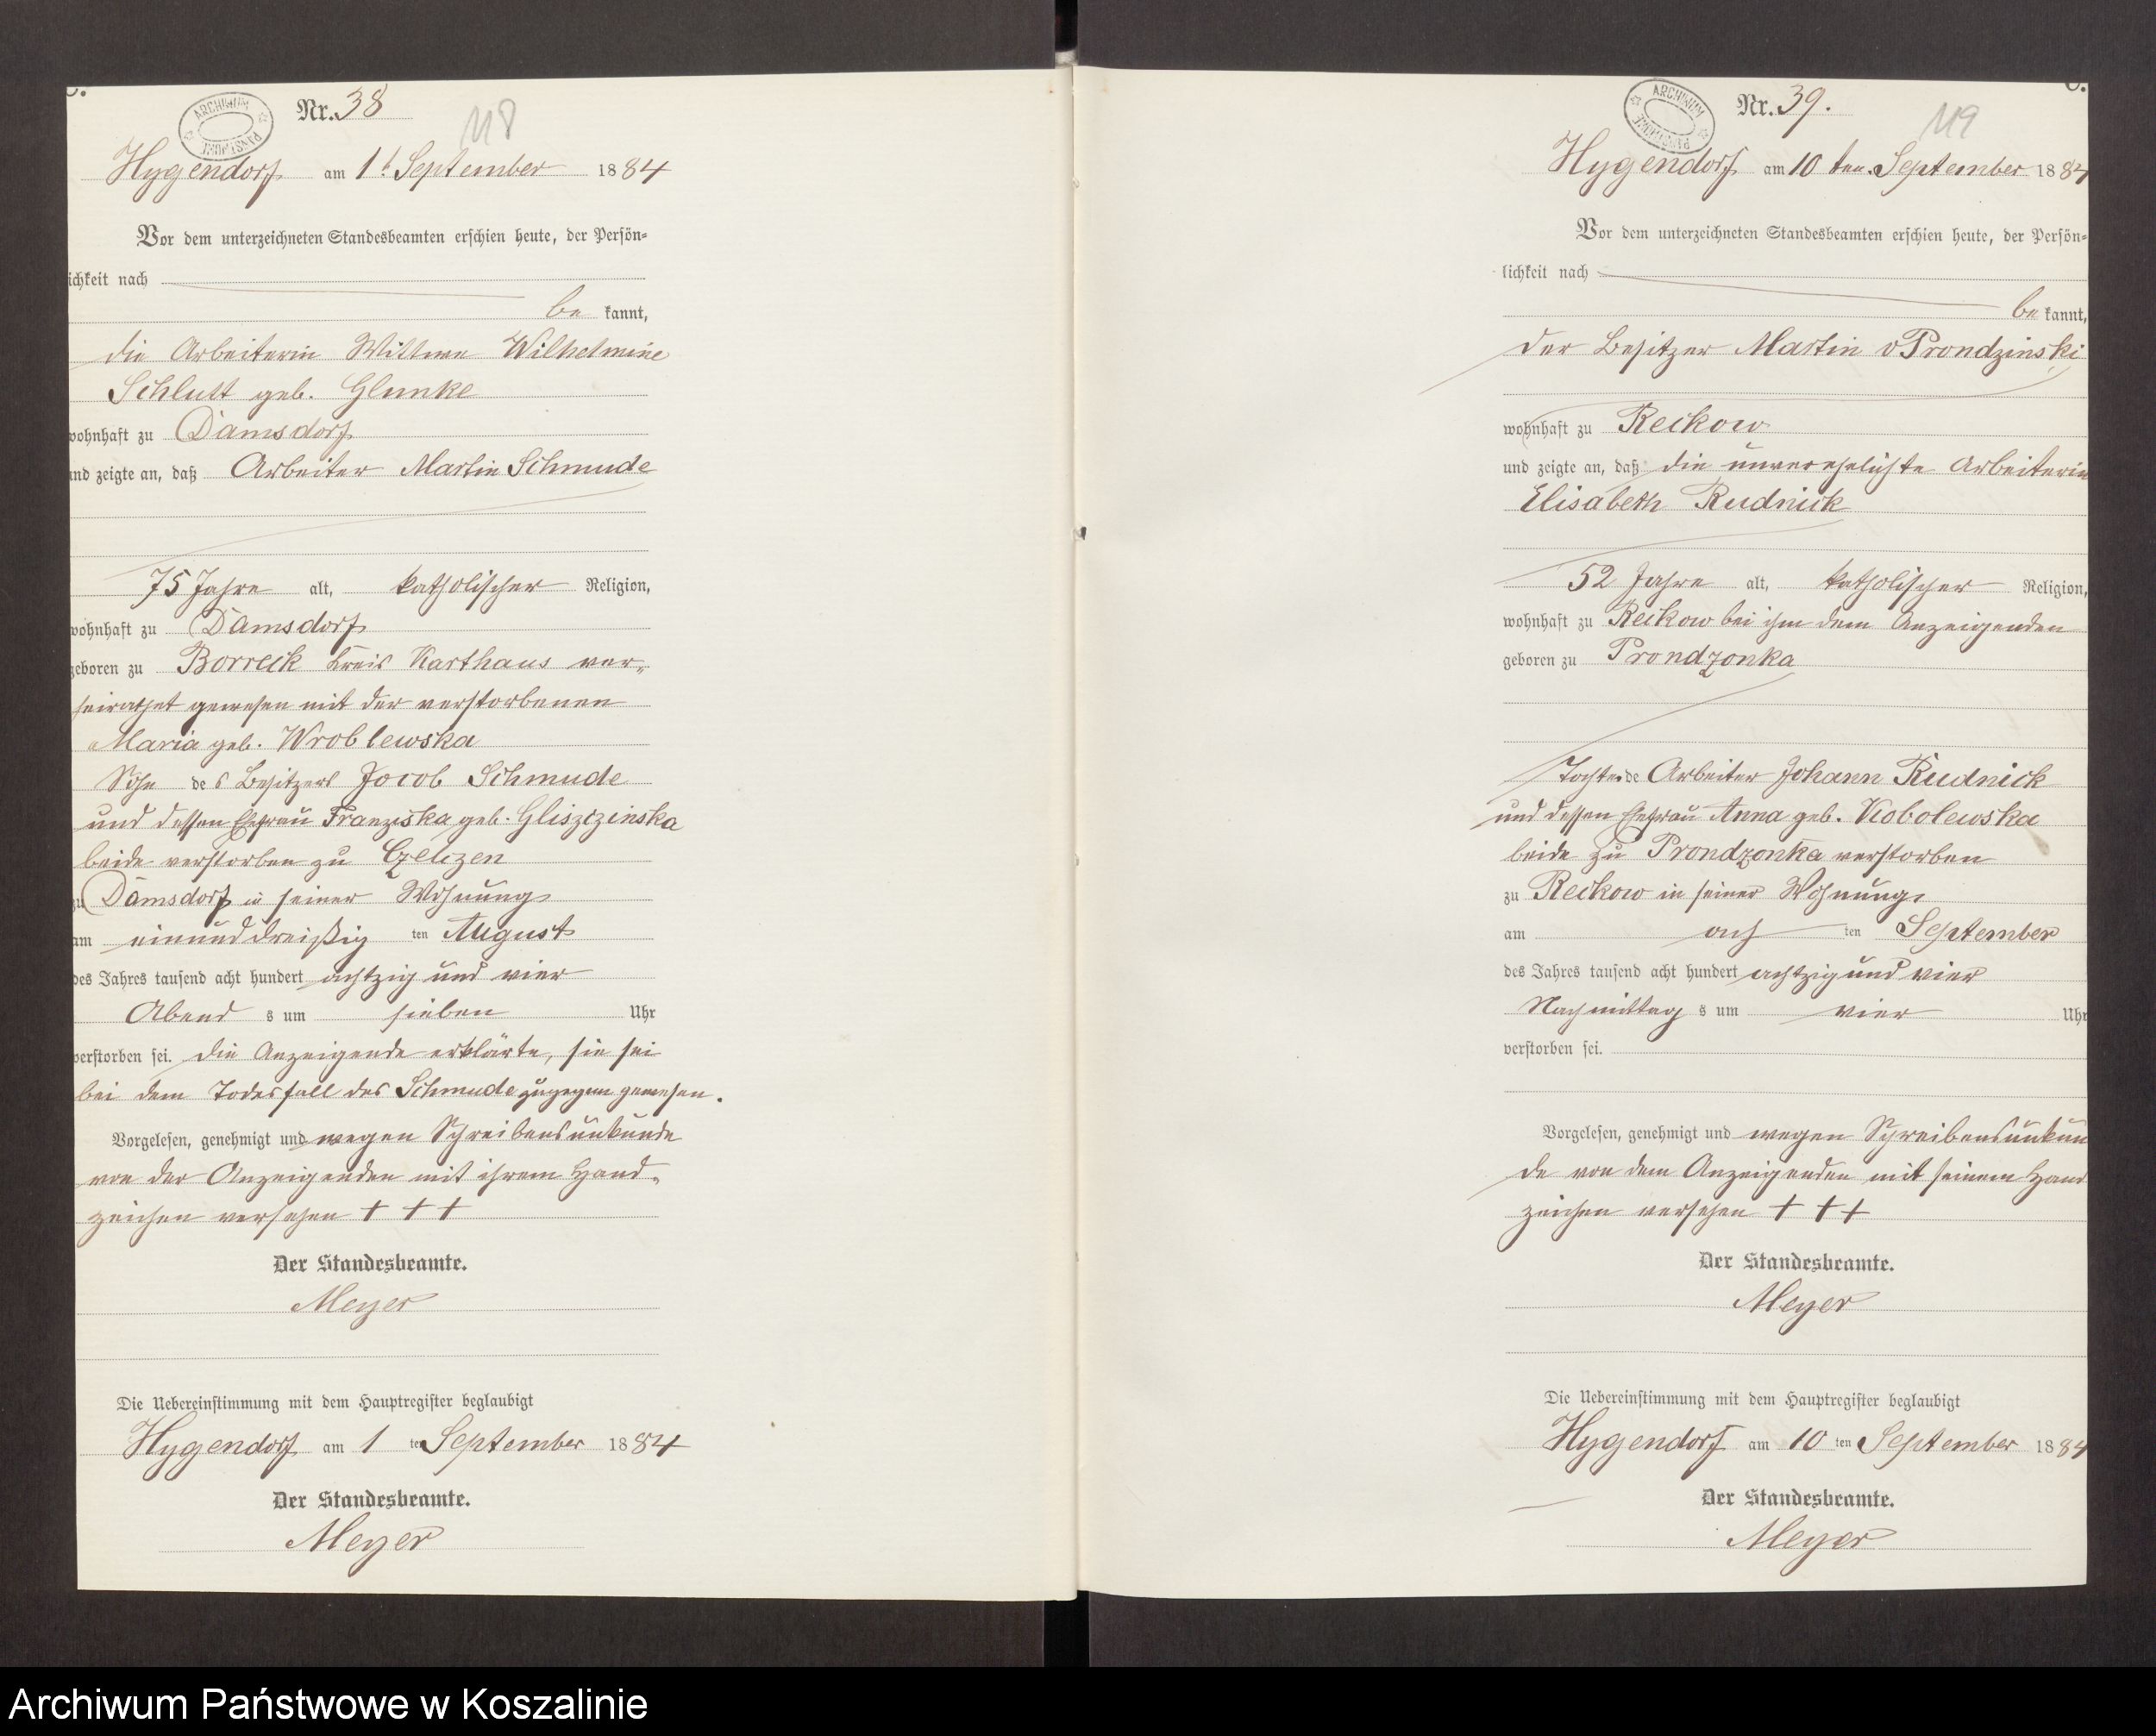 C.
ARCHIWUM PAŃSTWOWE
Nr. 38
118
Hygendorf am 1t September 1884
Vor dem unterzeichneten Standesbeamten erschien heute, der Persön-
ichkeit nach
be kannt,
die Arbeiterin Wittwe Wilhelmine
Schlutt geb. Glunke
wohnhaft zu Damsdorf
und zeigte an, daß Arbeiter Martin Schmude
75 Jahre alt, katholischer Religion,
wohnhaft zu Damsdorf
geboren zu Borreck Kreis Karthaus ver-
heirathet gewesen mit der verstorbenen
Maria geb. Wroblewska
Sohn des Besitzers Jocob Schmude
und dessen Ehefrau Franziska geb. Glisczinska
beide verstorben zu Czeczen
zu Damsdorf in seiner Wohnung
am einunddreißig ten August
des Jahres tausend acht hundert achtzig und vier
Abend s um sieben Uhr
verstorben sei. die Anzeigende erklärte, sie sei
bei dem Todesfall des Schmude zugegen gewesen.
Vorgelesen, genehmigt und wegen Schreibensunkunde
von der Anzeigenden mit ihrem Hand-
zeichen versehen + + +
Der Standesbeamte.
Meyer
Die Uebereinstimmung mit dem Hauptregister beglaubigt
Hygendorf am 1 ten September 1884
Der Standesbeamte.
Meyer
C.
ARCHIWUM PAŃSTWOWE
Nr. 39.
119
Hygendorf am 10 ten September 1884
Vor dem unterzeichneten Standesbeamten erschien heute, der Persön-
lichkeit nach
be kannt,
der Besitzer Martin v Prondzinski
wohnhaft zu Reckow
und zeigte an, daß die unverehelichte Arbeiterin
Elisabeth Rudnick
52 Jahre alt, katholischer Religion,
wohnhaft zu Reckow bei ihm dem Anzeigenden
geboren zu Prondzonka
Tochter de Arbeiter Johann Rudnick
und dessen Ehefrau Anna geb. Kobolewska
beide zu Prondzonka verstorben
zu Reckow in seiner Wohnung
am ach ten September
des Jahres tausend acht hundert achtzig und vier
Nachmittag s um vier Uhr
verstorben sei.
Vorgelesen, genehmigt und wegen Schreibensunkun
de von dem Anzeigenden mit seinem Hand
zeichen versehen + + +
Der Standesbeamte.
Meyer
Die Uebereinstimmung mit dem Hauptregister beglaubigt
Hygendorf am 10 ten September 1884
Der Standesbeamte.
Meyer
Archiwum Państwowe w Koszalinie